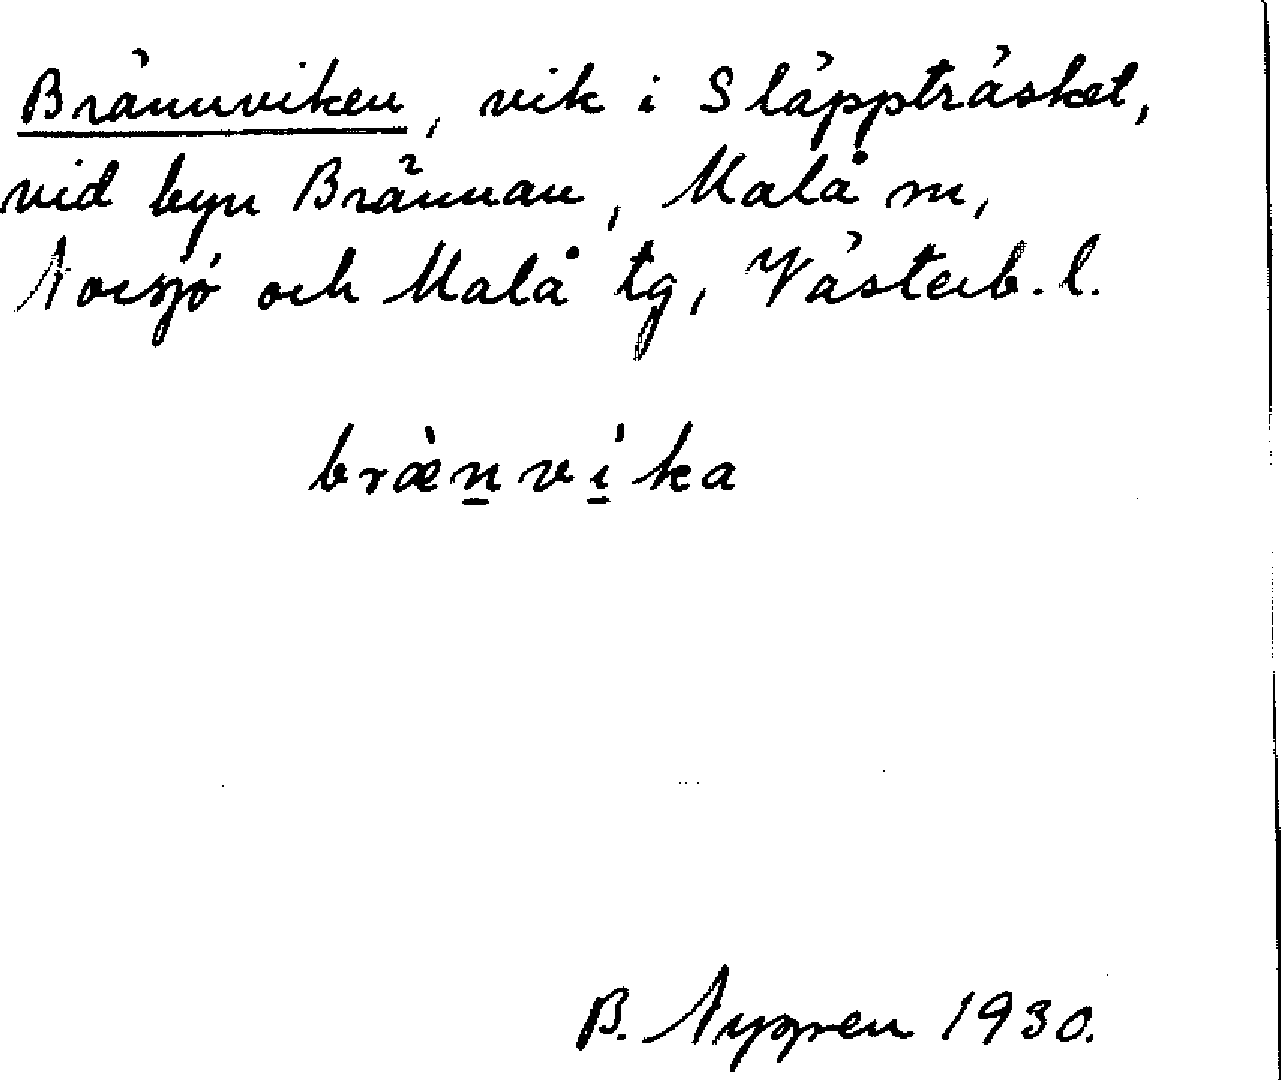 Brännviken, vik i Släppträsket,
vid byn Brännan, Malå sn,
Norsjö och Malå tg, Västerb. l.
bræ̀n̲vi̲̍ka
B. Nygren 1930.